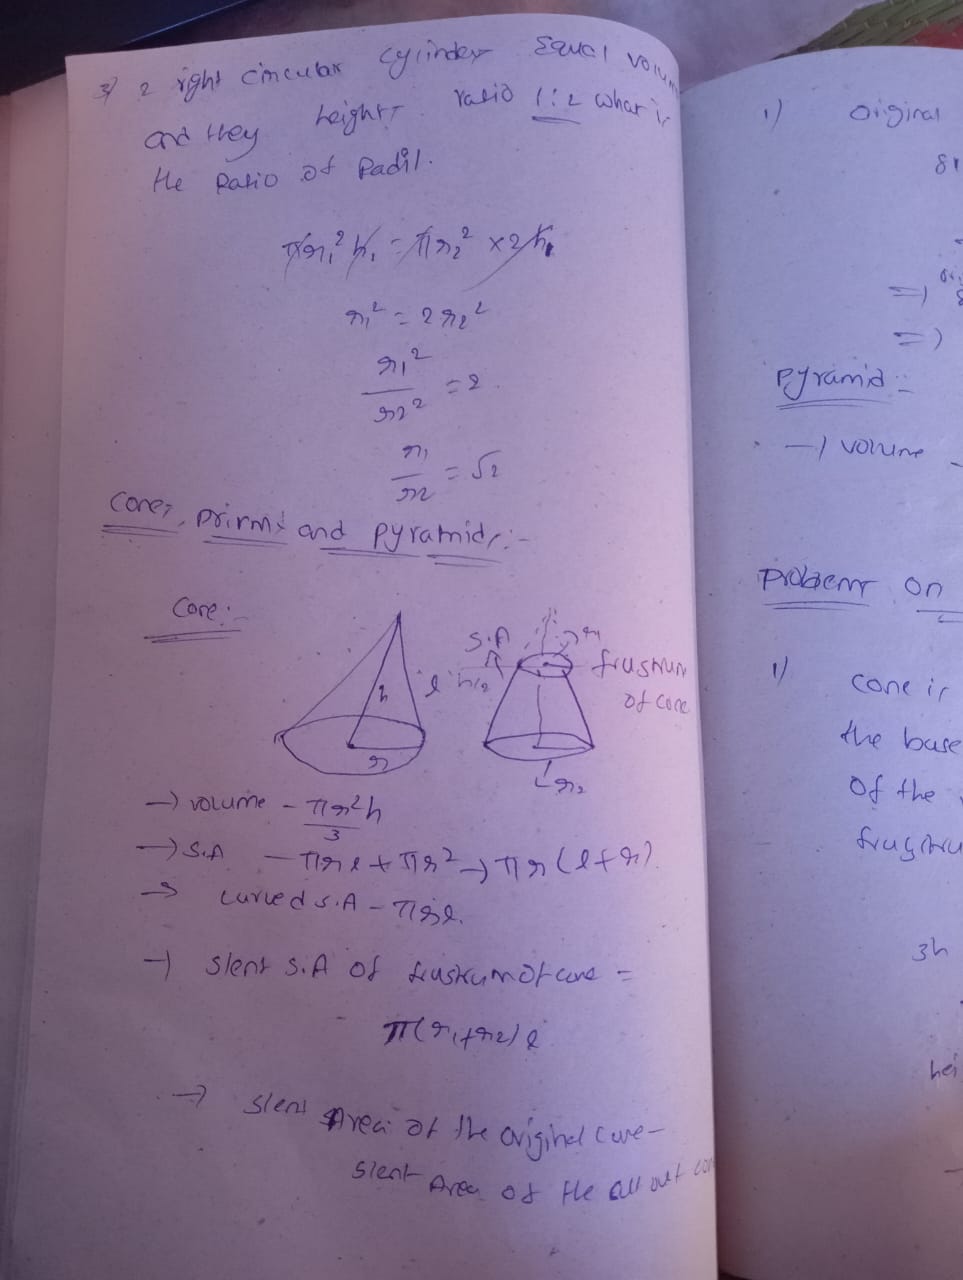 3) 2 right circular cylinder Equal volum
and they heights ratio 1:2 what is
the Ratio of Radii.
πr₁²h₁ = πr₂² × 2h₁
r₁² = 2r₂²
r₁²/r2² = 2
r₁/r2 = √2
Cones, prisms and pyramids:-
Cone:-
h
l
r
S.A
h/2
r₁
frustrum
of cone
r₂
→ volume - πr²h/3
→ S.A - πrl + πr² → πr(l+r)
→ curved S.A - πrl.
→ slent S.A of frustrum of cone =
π(r₁+r2)l
→ slent Area of the original cone -
slent Area of the cut out con
1) original
81
=)
=)
pyramid:-
→ volume
problems on
1) cone is
the base
of the
frugstru
3h
hei